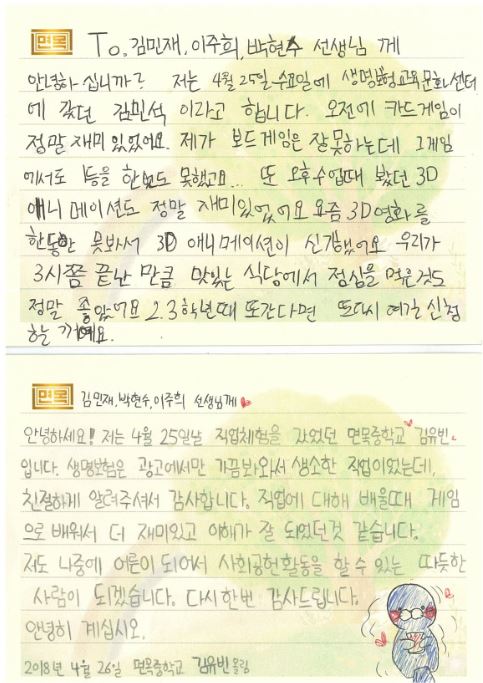 면목
To. 김민재, 이주희, 박현수 선생님 께
안녕하 십니까? 저는 4월 25일 수요일에 생명보험교육문화센터
에 갔던 김민석 이라고 합니다. 오전에 카드게임이
정말 재미 있었어요. 제가 보드게임은 잘못하는데 그게임
에서도 1등을 한번도 못했고요... 또 오후수업때 봤던 3D
애니메이션도 정말 재미있었어요 요즘 3D영화를
한동안 못봐서 3D 애니메이션이 신기했어요 우리가
3시쯤 끝난 만큼 맛있는 식당에서 점심을 먹은것도
정말 좋았어요 2.3학년때 또간다면 또다시 여기 신청
하는 거예요.
면목
김민재, 박현수, 이주희 선생님께
안녕하세요! 저는 4월 25일날 직업체험을 갔었던 면목중학교 김유빈
입니다. 생명보험은 광고에서만 가끔봐와서 생소한 직업이었는데,
친절하게 알려주셔서 감사합니다. 직업에 대해 배울때 게임
으로 배워서 더 재미있고 이해가 잘 되었던것 같습니다.
저도 나중에 어른이 되어서 사회공헌활동을 할 수 있는 따듯한
사람이 되겠습니다. 다시한번 감사드립니다.
안녕히 계십시오.
2018년 4월 26일 면목중학교 김유빈올림